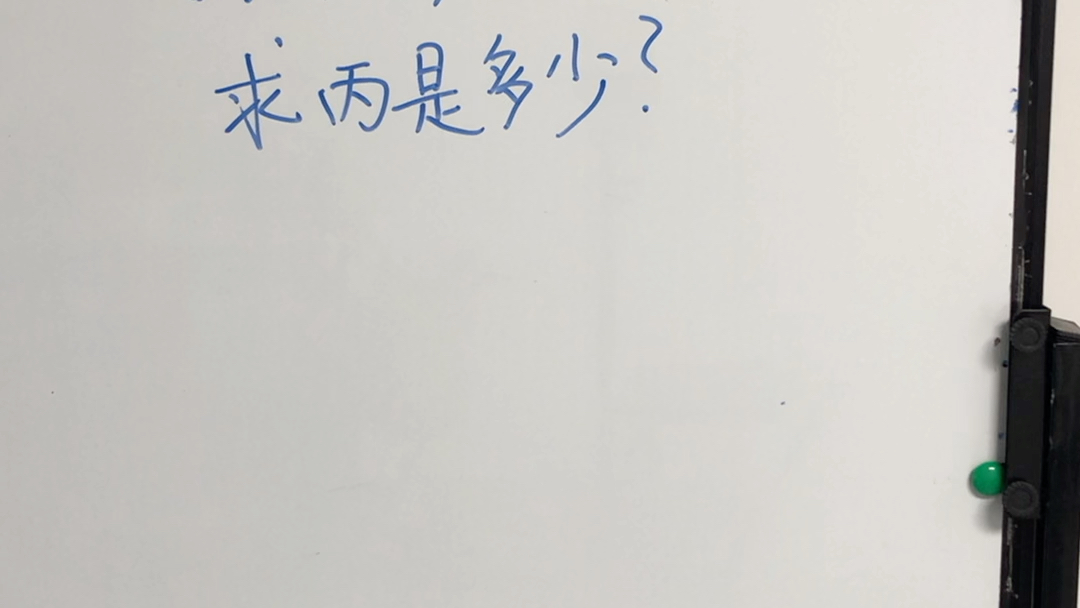 求丙是多少？